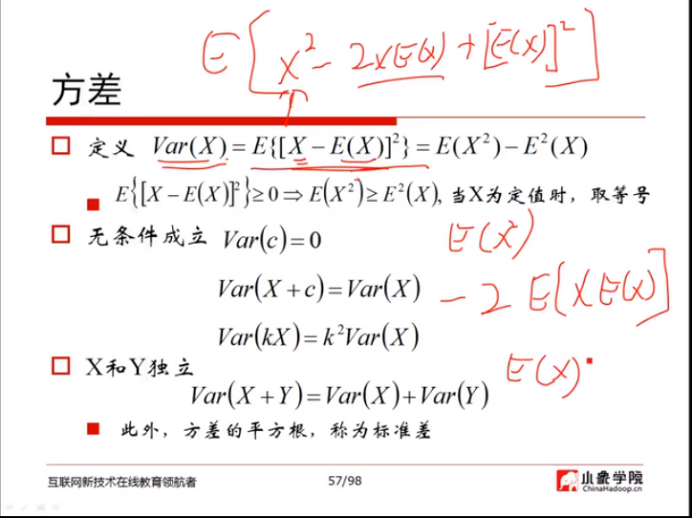 E[X² - 2XE(X) + [E(X)]²]
方差
定义 Var(X) = E{[X − E(X)]²} = E(X²) − E²(X)
E{[X − E(X)]²} ≥ 0 ⇒ E(X²) ≥ E²(X), 当X为定值时，取等号
无条件成立 Var(c) = 0
E(X²)
Var(X + c) = Var(X)
- 2 E[X E(X)]
Var(kX) = k²Var(X)
X和Y独立
E(X)
Var(X + Y) = Var(X) + Var(Y)
此外，方差的平方根，称为标准差
互联网新技术在线教育领航者
57/98
小象学院
ChinaHadoop.cn